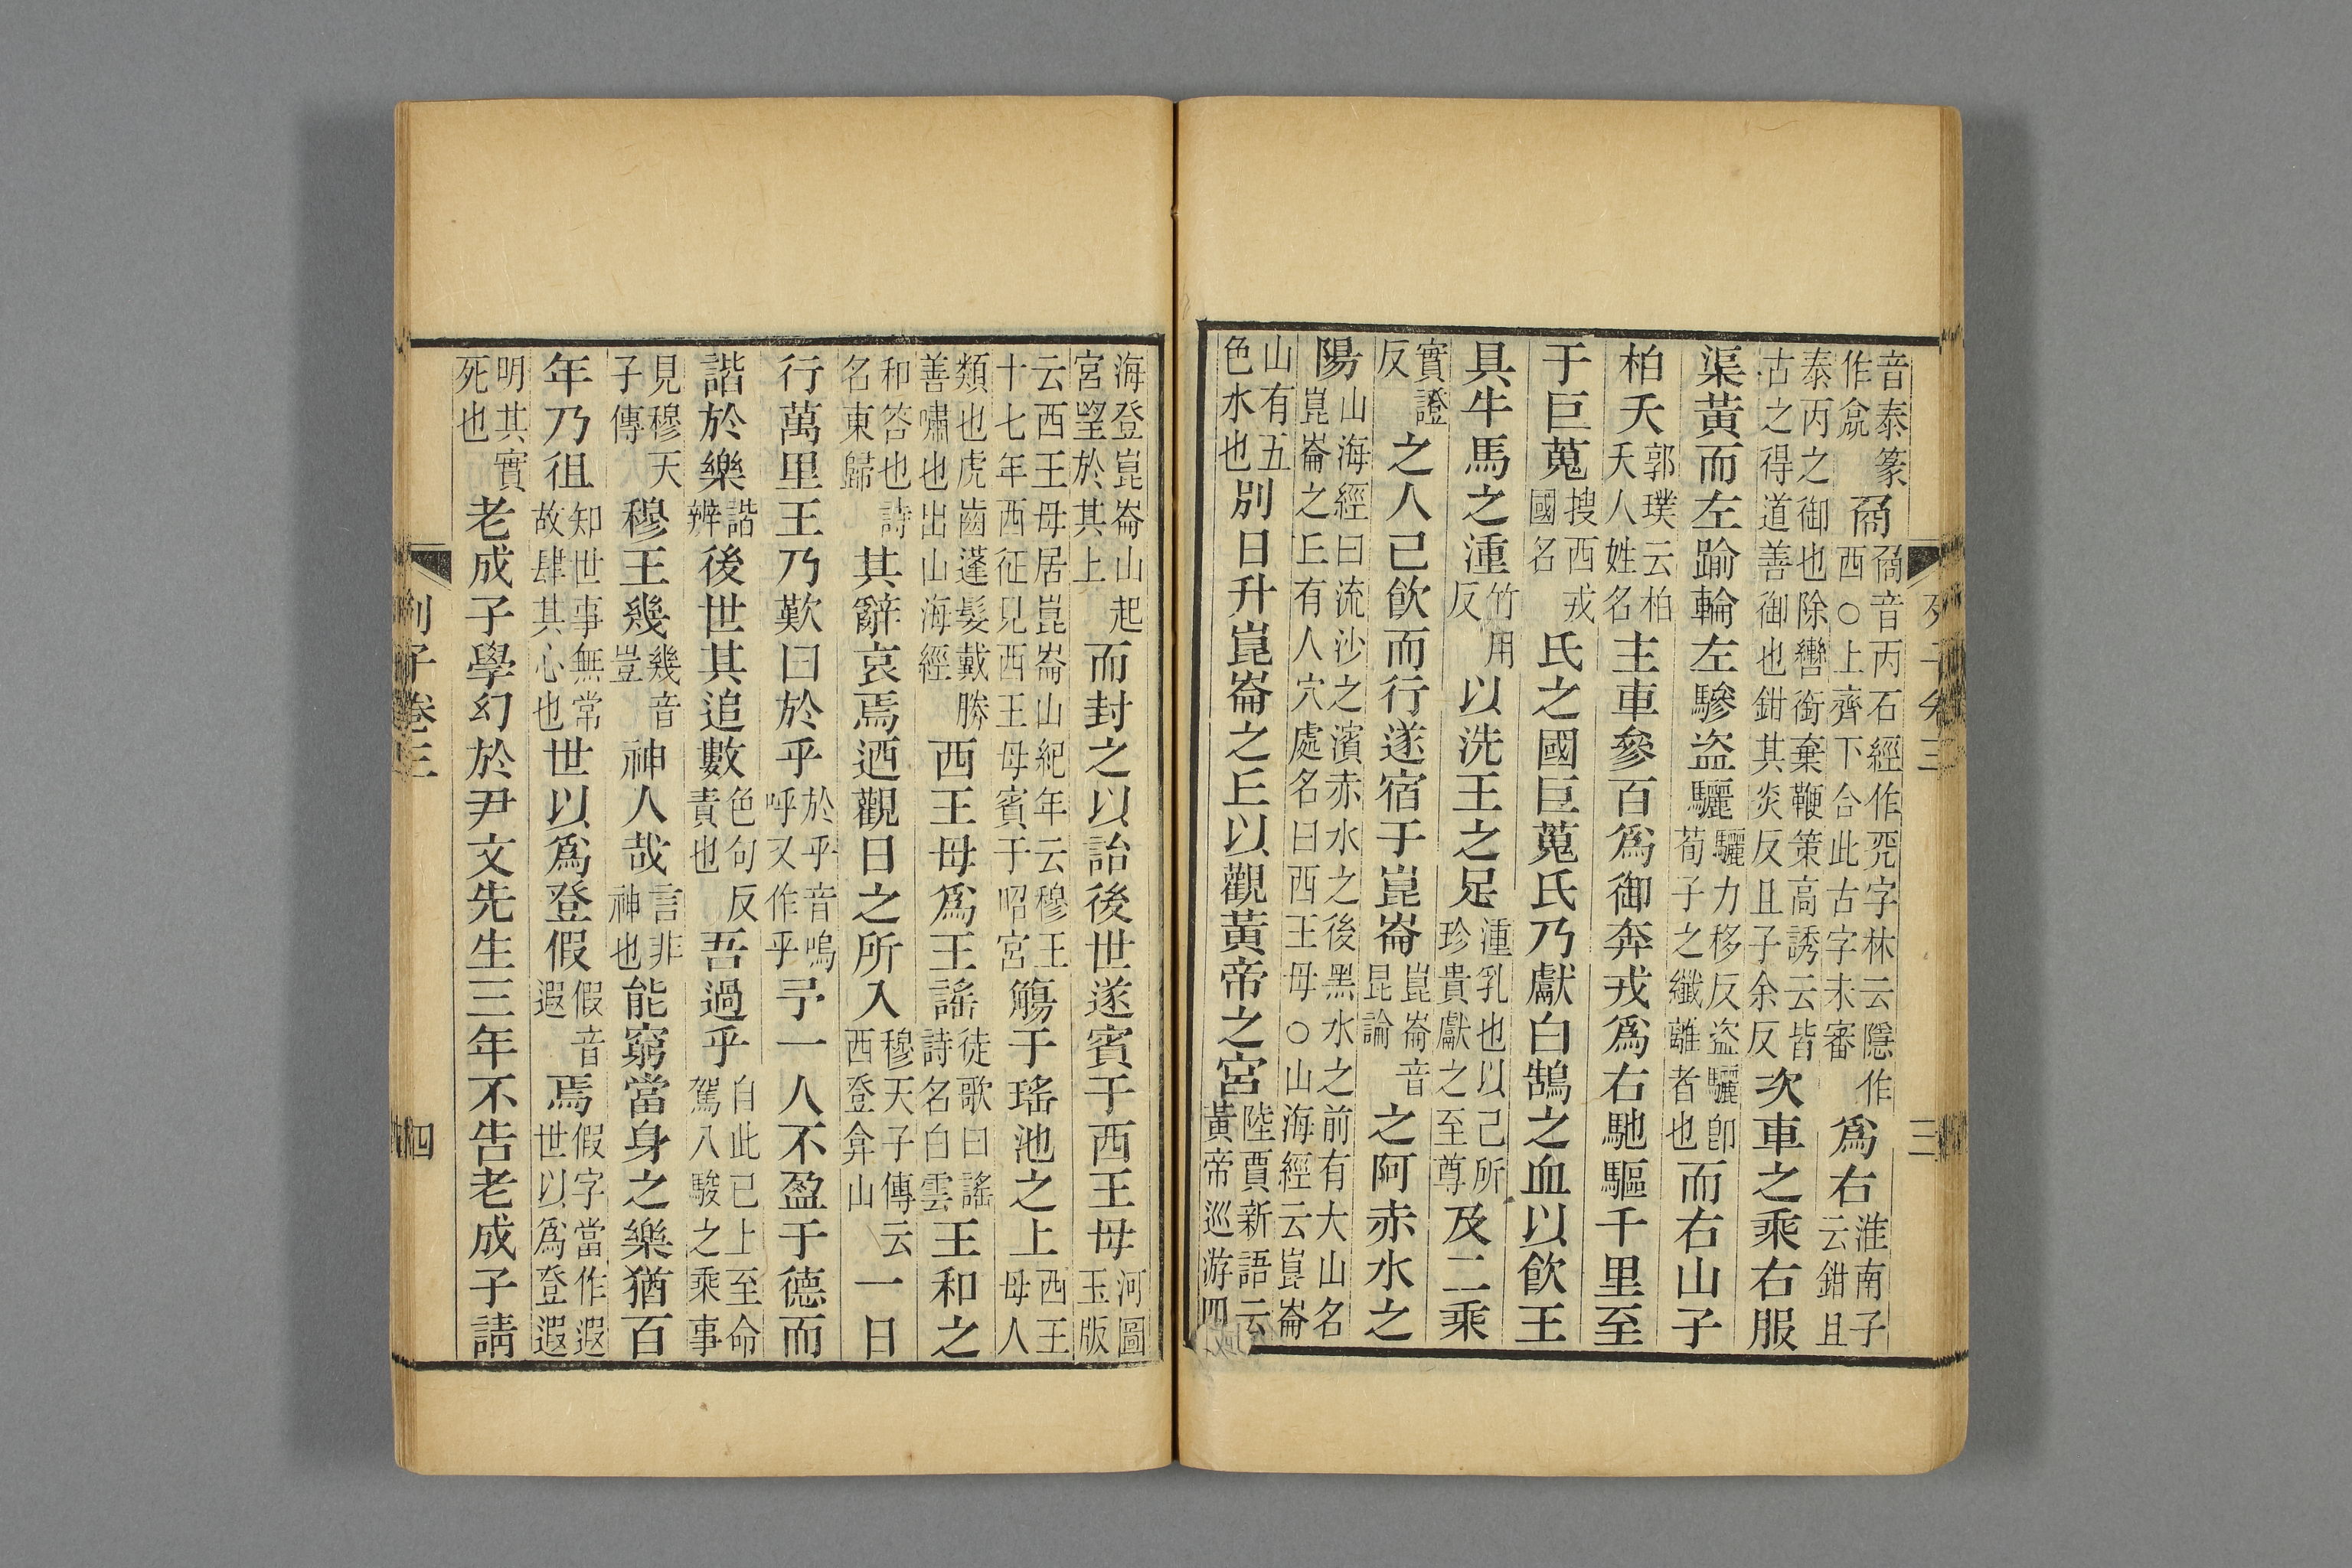 音泰篆作㕯㕯音丙石經作字林云隱作西○上齊下合此古字未審爲右淮南子云鉗且
泰丙之御也除轡銜棄鞭策高誘云皆古之得道善御也鉗其炎反且子余反次車之乘右服
渠黃而左踰輪左驂盜驪驪力移反盜驪卽荀子之纖離者也而右山子
柏夭郭璞云柏夭人姓名主車參百爲御奔戎爲右馳驅千里至
于巨蒐搜西戎國名氏之國巨蒐氏乃獻白鵠之血以飲王
具牛馬之湩竹用反以洗王之足湩乳也以己所珍貴獻之至尊及二乘
實證反之人已飲而行遂宿于崑崙崑崙音昆論之阿赤水之
陽山海經曰流沙之濱赤水之後黑水之前有大山名崑崙之丘有人穴處名曰西王母○山海經云崑崙
山有五色水也別日升崑崙之丘以觀黃帝之宮陸賈新語云黃帝巡游四
列子卷三
三
海登崑崙山起宮望於其上而封之以詒後世遂賓于西王母河圖玉版
云西王母居崑崙山紀年云穆王十七年西征見西王母賓于昭宮觴于瑤池之上西王母人
類也虎齒蓬髮戴勝善嘯也出山海經西王母爲王謠徒歌曰謠詩名白雲王和之
和答也詩名東歸其辭哀焉迺觀日之所入穆天子傳云西登弇山一日
行萬里王乃歎曰於乎於乎音嗚呼又作乎予一人不盈于德而
諧於樂諧辨後世其追數色句反責也吾過乎自此已上至命駕八駿之乘事
見穆天子傳穆王幾幾音豈神人哉言非神也能窮當身之樂猶百
年乃徂知世事無常故肆其心也世以爲登假假音遐焉假字當作遐世以爲登遐
明其實死也老成子學幻於尹文先生三年不告老成子請
列子卷三
四